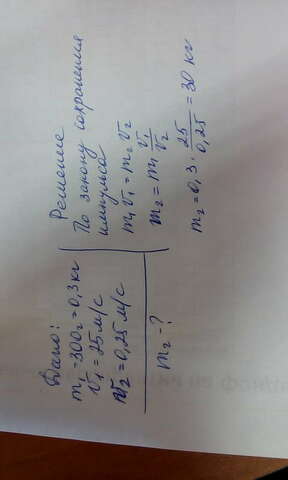 Дано:
m₁ = 300г = 0,3 кг
v₁ = 25 м/с
v₂ = 0,25 м/с
m₂ - ?
Решение
По закону сохранения
импульса
m₁ v₁ = m₂ v₂
m₂ = m₁ v₁/v₂
m₂ = 0,3 · 25/0,25 = 30 кг